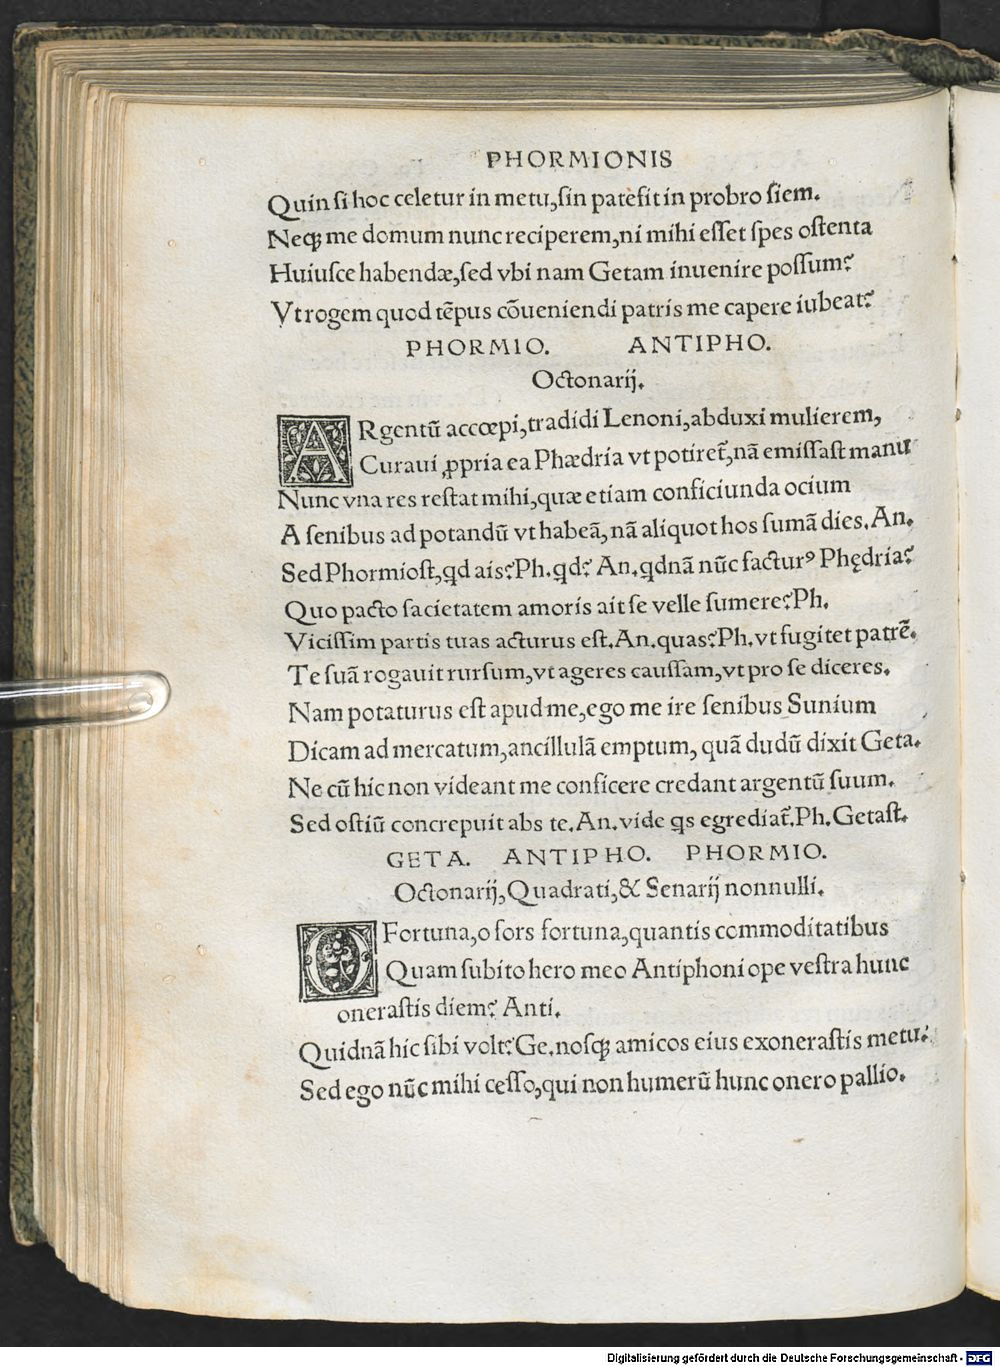 PHORMIONIS
Quin ſi hoc celetur in metu,ſin patefit in probro ſiem.
Neqꝫ me domum nunc reciperem,ni mihi eſſet ſpes oſtenta
Huiuſce habendæ,ſed vbi nam Getam inuenire poſſum?
Vt rogem quod tẽpus cõueniendi patris me capere iubeat?
PHORMIO. ANTIPHO.
Octonarij.
ARgentũ accœpi,tradidi Lenoni,abduxi mulierem,
Curaui ꝓpria ea Phædria vt potiret̃,nã emiſſaſt manu
Nunc vna res reſtat mihi,quæ etiam conficiunda ocium
A ſenibus ad potandũ vt habeã,nã aliquot hos ſumã dies.An.
Sed Phormioſt,qd ais?Ph.qd? An.qdnã nũc facturꝰ Phędria?
Quo pacto ſacietatem amoris ait ſe velle ſumere?Ph.
Viciſſim partis tuas acturus eſt.An.quas?Ph.vt fugitet patrẽ.
Te ſuã rogauit rurſum,vt ageres cauſſam,vt pro ſe diceres.
Nam potaturus eſt apud me,ego me ire ſenibus Sunium
Dicam ad mercatum,ancillulã emptum, quã dudũ dixit Geta.
Ne cũ hic non videant me conficere credant argentũ ſuum.
Sed oſtiũ concrepuit abs te.An.vide qs egrediat̃.Ph.Getaſt.
GETA. ANTIPHO. PHORMIO.
Octonarij,Quadrati,& Senarij nonnulli.
O Fortuna,o fors fortuna,quantis commoditatibus
Quam ſubito hero meo Antiphoni ope veſtra hunc
oneraſtis diem? Anti.
Quidnã hic ſibi volt?Ge.noſqꝫ amicos eius exoneraſtis metu?
Sed ego nũc mihi ceſſo,qui non humerũ hunc onero pallio.
Digitalisierung gefördert durch die Deutsche Forschungsgemeinschaft - DFG